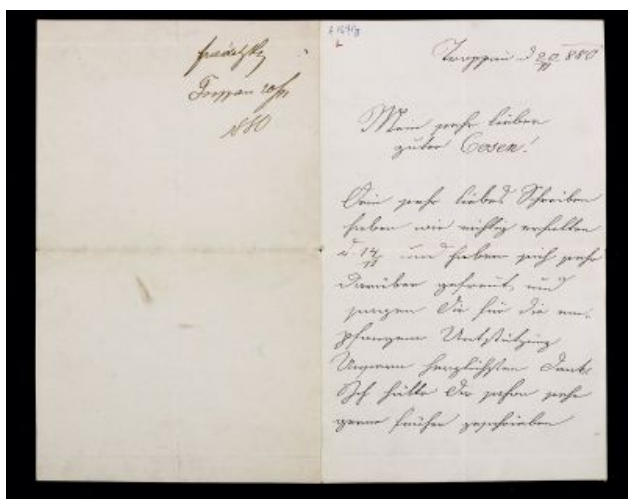 Troppau 20/11
1880
A 1649/8
Troppau d 20/11 880
Mein sehr lieber
guter Cosen!
Dein sehr liebes Schreiben
haben wir richtig erhalten
d. 14/11 und haben sich sehr
darüber gefreut, und
sagen Dir für die em-
pfangene Unterstützung
Unseren herzlichsten Dank.
Ich hätte Dir schon sehr
gerne früher geschrieben